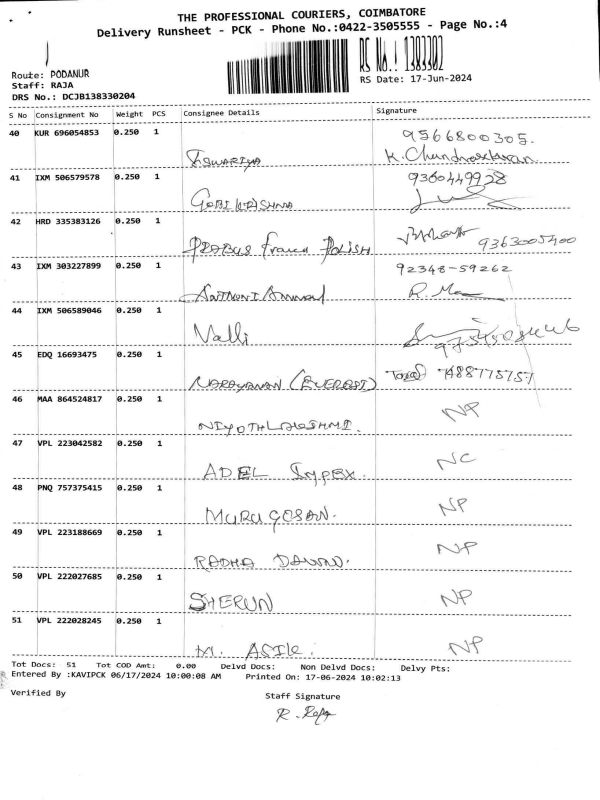 THE PROFESSIONAL COURIERS, COIMBATORE
Delivery Runsheet - PCK - Phone No.:0422-3505555 - Page No.:4
RS No.: 1383302
Route: PODANUR
Staff: RAJA
RS Date: 17-Jun-2024
DRS No.: DCJB138330204
S No Consignment No Weight PCS Consignee Details Signature
40 KUR 696054853 0.250 1 9566800305.
ISWARIYA K. Chandrasekaran
41 IXM 506579578 0.250 1 9360449928
GOBI KRISHNA
42 HRD 335383126 0.250 1
PROBUS France POLISH 9363005400
43 IXM 303227899 0.250 1 92348-59262
44 IXM 506589046 0.250 1
Valli
45 EDQ 16693475 0.250 1
NARAYANAN (EVEREST) 7488775757
46 MAA 864524817 0.250 1 NP
NIYOTHLAKSHMI.
47 VPL 223042582 0.250 1 NC
ADEL Impex.
48 PNQ 757375415 0.250 1 NP
MURUGESAN.
49 VPL 223188669 0.250 1 NP
RADHA
50 VPL 222027685 0.250 1 NP
SHERUN
51 VPL 222028245 0.250 1 NP
M. ASIK.
Tot Docs: 51 Tot COD Amt: 0.00 Delvd Docs: Non Delvd Docs: Delvy Pts:
Entered By :KAVIPCK 06/17/2024 10:00:08 AM Printed On: 17-06-2024 10:02:13
Verified By Staff Signature
R. Raja